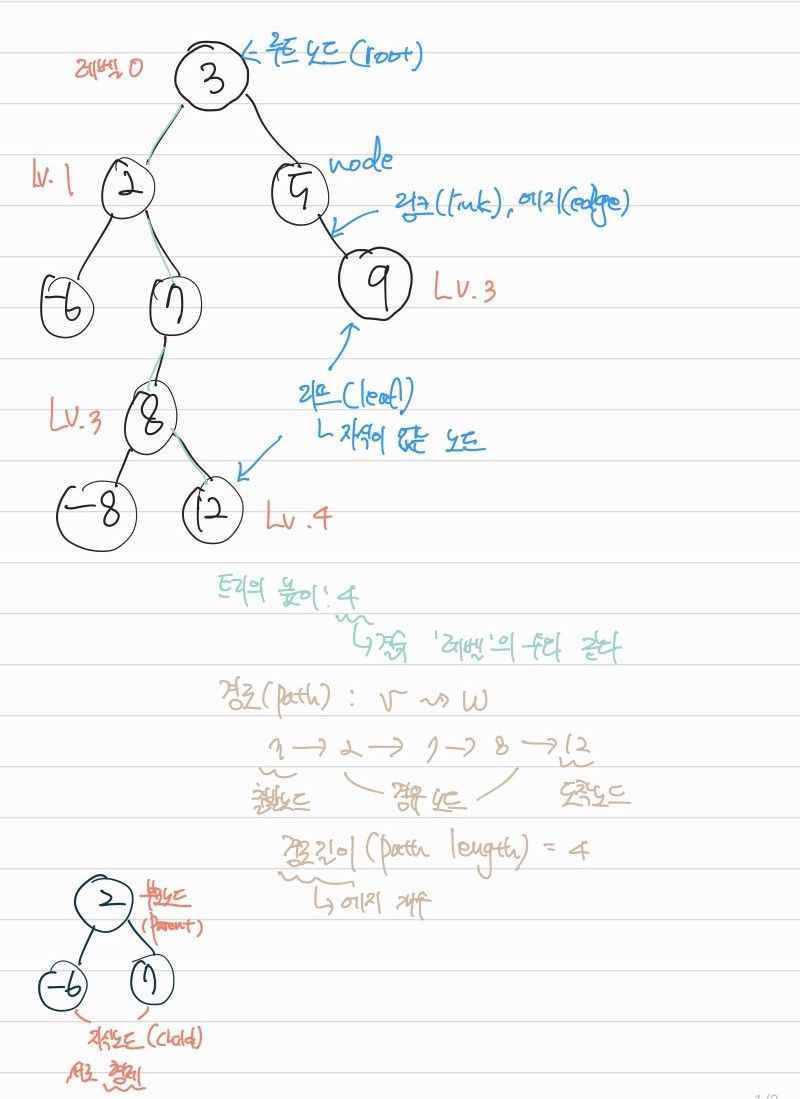 레벨 0
3
← 루트 노드 (root)
Lv. 1
2
5
node
링크(link), 에지(edge)
-6
7
9
Lv. 3
리프 (leaf)
ㄴ 자식이 없는 노드
Lv. 3
8
-8
12
Lv. 4
트리의 높이 : 4
↳ 결국 '레벨'의 수와 같다
경로(path) : v ⇝ w
3 → 2 → 7 → 8 → 12
출발노드 경유 노드 도착노드
경로길이 (path length) = 4
↳ 에지 개수
2
부모노드
(parent)
-6
7
자식노드 (child)
서로 형제